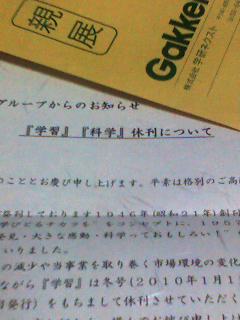 親展
Gakken
株式会社 学研ネクスト
グループからのお知らせ
『学習』『科学』休刊について
のこととお慶び申し上げます。平素は格別のご高
発刊しております1946年(昭和21年)創刊
発見・大きな感動・科学っておもしろい!
いりました。
の減少や当事業を取り巻く市場環境の変化
ながら『学習』は冬号(2010年1月1
日発行)をもちまして休刊させていただく